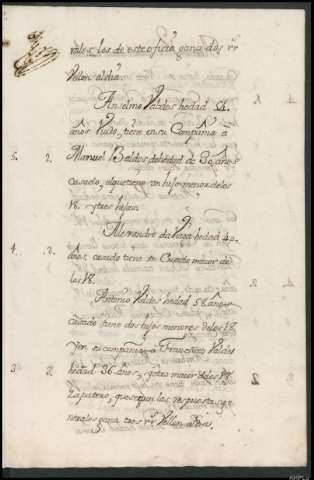 rales los de este oficio gana dos rs
Vellon al dia.
Anselmo Valdes hedad 54
años Viudo, tiene en su Compañia a
5. 2. Manuel Baldes de hedad de 30 años
casado, el que tiene un hijo menor de los
18. y tres hijas.
Alexandro da Veiga hedad 40
4. 2. años, casado tiene un Cuñado maior de
los 18.
Antonio Valdes hedad 58 años
casado tiene dos hijos menores de los 18
y en su compañia a Francisco Valdes
3. 2. hedad 26 años, y otro maior de los 18
Zapatero, que segun las respuestas ge
nerales gana tres rs Vellon al dia.